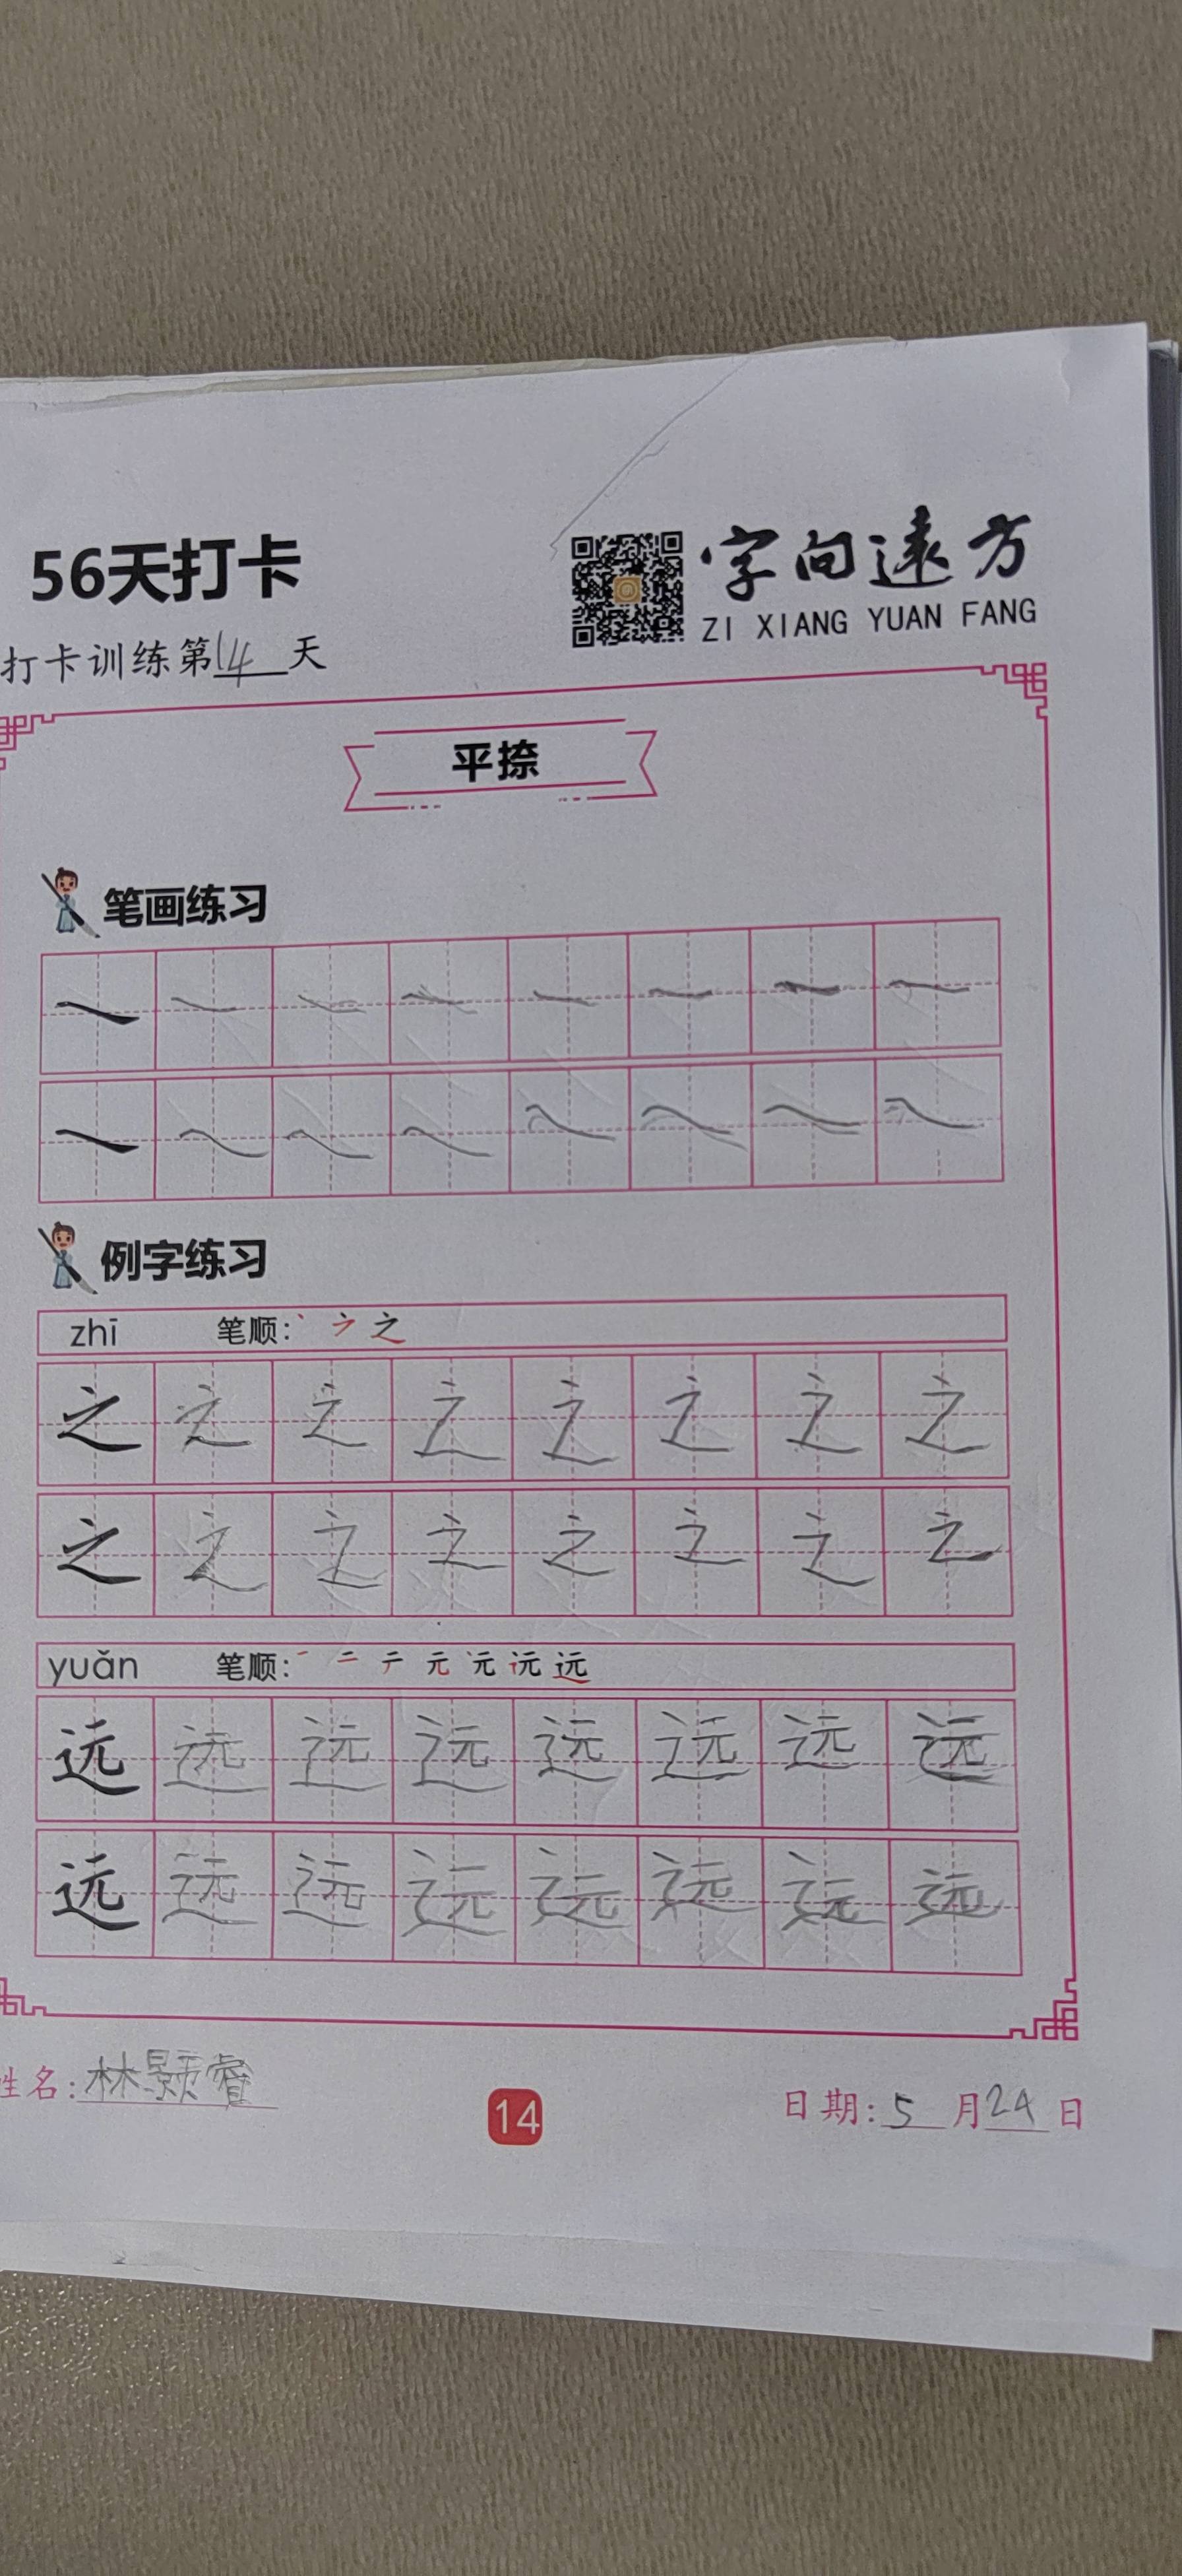 56天打卡
字向遠方
ZI XIANG YUAN FANG
打卡训练第14天
平捺
笔画练习
例字练习
zhī 笔顺: 之
之 之 之 之 之 之 之 之
之 之 之 之 之 之 之 之
yuǎn 笔顺: 一 二 元 元 远
远 远 远 远 远 远 远 远
远 远 远 远 远 远 远 远
姓名: 林颢睿
14
日期: 5月24日